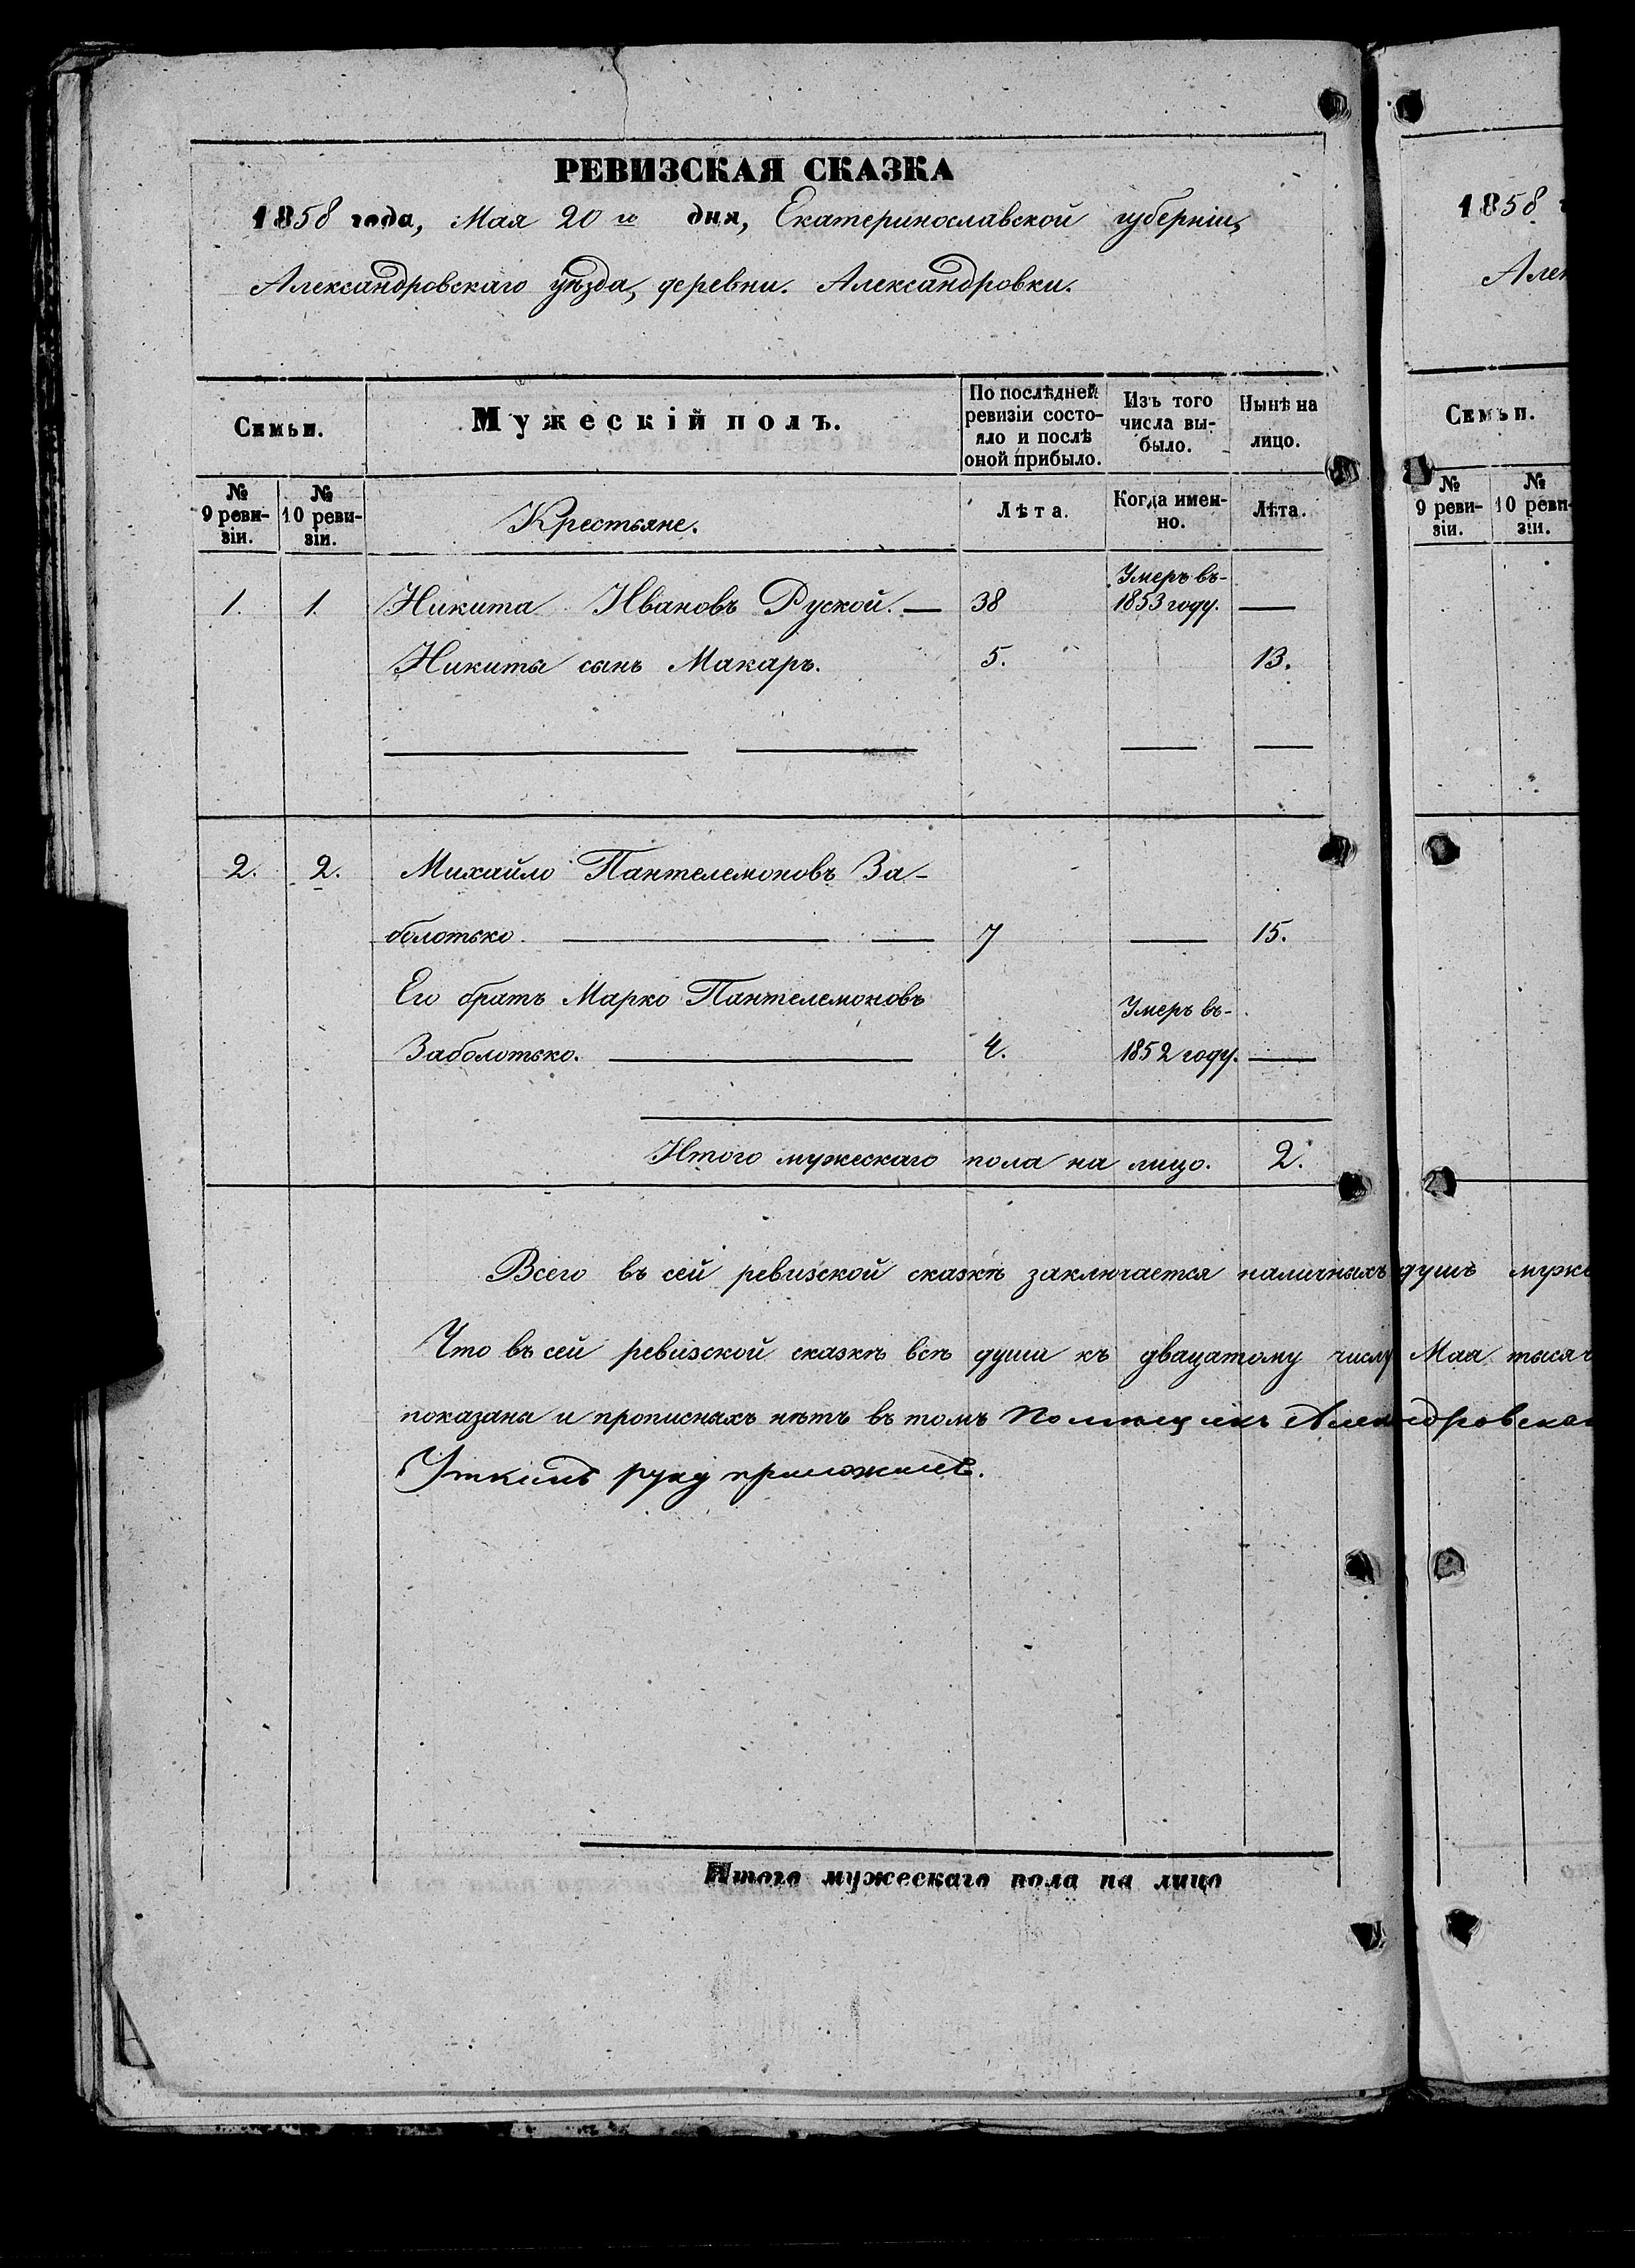 РЕВИЗСКАЯ СКАЗКА
1858 года, Мая 20го дня, Екатеринославской губерніи,
Александровскаго уѣзда, деревни. Александровки.
Семьи.
Мужескій полъ.
По послѣдней
ревизіи состо-
яло и послѣ
оной прибыло.
Изъ того
числа вы-
было.
Нынѣ на
лицо.
№
9 реви-
зіи.
№
10 реви-
зіи.
Крестьяне.
Лѣта.
Когда имен-
но.
Лѣта.
Умеръ въ-
1. 1. Никита Ивановъ Руской. — 38 1853 году. —
Никиты сынъ Макаръ. 5. 13.
2. 2. Михайло Пантелемоновъ За-
болотько. — — 7 — 15.
Его братъ Марко Пантелемоновъ
Умеръ въ-
Заболотько. — 4. 1852 году. —
Итого мужескаго пола на лицо. 2.
Всего въ сей ревизской сказкѣ заключается наличныхъ душъ муже
Что въ сей ревизской сказкѣ всѣ души къ двацатому числу Мая тысяч
показаны и прописныхъ нѣтъ въ томъ Помѣщикъ Александровска
руку приложилъ.
Итого мужескаго пола на лицо
1858
Алек
Семьи.
№
9 реви-
зіи.
№
10 реви-
зіи.